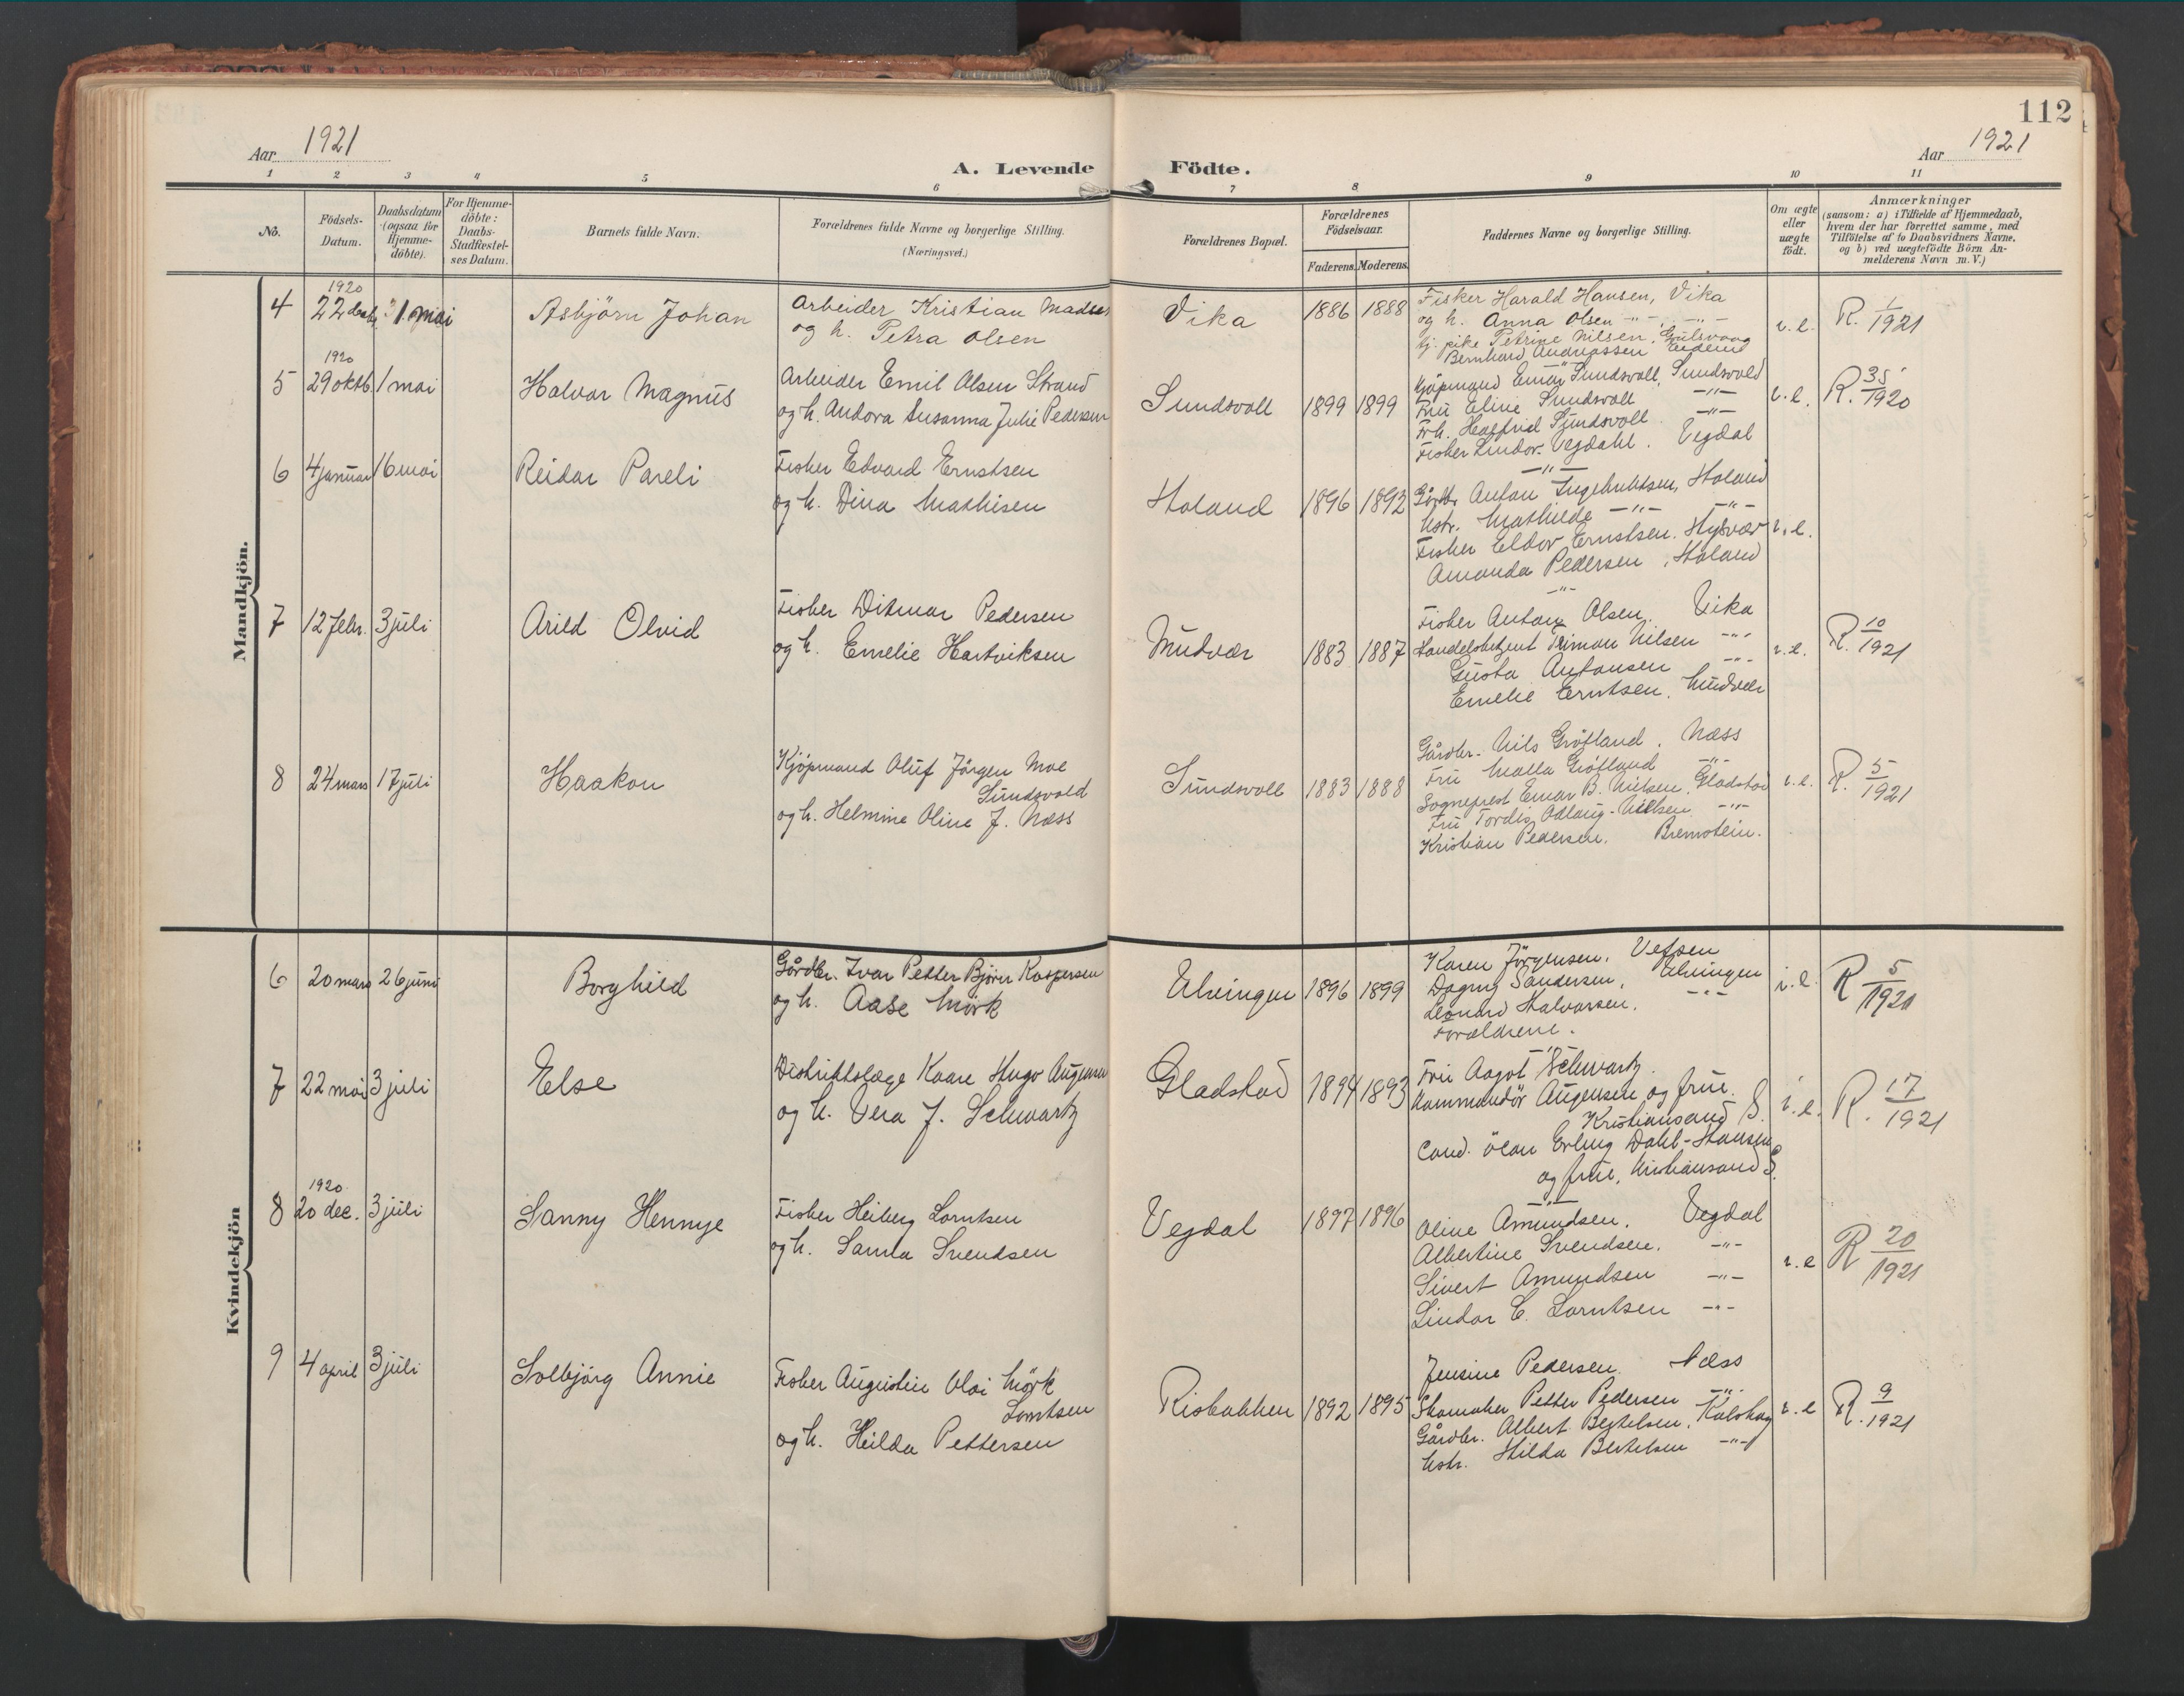 112
Aar 1921
A. Levende Födte.
Aar 1921
1 2 3 4 5 6 7 8 9 10 11
No.
Födsels-Datum.
Daabsdatum (ogsaa for Hjemme-döbte).
For Hjemme-döbte: Daabs-Stadfæstel-ses Datum.
Barnets fulde Navn.
Forældrenes fulde Navne og borgerlige Stilling.
(Næringsvei.)
Forældrenes Bopæl.
Forældrenes Födselsaar.
Faderens. Moderens.
Faddernes Navne og borgerlige Stilling.
Om ægte eller uægte födt.
Anmærkninger
(saasom: a) i Tilfælde af Hjemmedaab,
hvem der har forrettet samme, med
Tilföielse af to Daabsvidners Navne,
og b) ved uægtefödte Börn An-
melderens Navn m. V.)
Mandkjön.
1920
4 22 1 mai Asbjörn Johan
Arbeider Kristian Madsen
og h. Petra Olsen
Vika 1886 1888
Fisker Harald Hansen, Vika
og h. Anna Olsen -"- -"-
pike Petrine Nilsen,
Bernhard Andreassen
i.e. R. 1/1921
1920
5 29 oktb. 1 mai Halvar Magnus
Arbeider Emil Olsen Strand
og h. Andora Susanna Julie Pedersen
Sundsvoll 1899 1899
Kjöpmand Einar Sundsvoll, Sundsvold
Fru Eline Sundsvoll -"-
Frk. Hagfrid Sundsvoll -"-
Fisker Lindor Vegdahl. Vegdal
i.e. R. 35/1920
6 4 januar 16 mai Reidar Pareli
Fisker Edvard Ernstsen
og h. Dina Mathisen
Holand 1896 1892
-"-
Gårdbr. Anton Ingebriktsen, Holand
Hstr. Mathilde -"- -"-
Fisker Eldor Ernstsen. Hysvær
Amanda Pedersen, Holand
i.e.
7 12 febr. 3 juli Arild Olvid
Fisker Ditmar Pedersen
og h. Emelie Hartviksen
Mudvær 1883 1887
-"-
Fisker Anton Olsen. Vika
Handelsbetjent Rimon Nilsen -"-
Gusta Antonsen -"-
Emelie Erntsen. Mudvær
i.e. R. 10/1921
8 24 mars 17 juli Haakon
Kjöpmand Oluf Jörgen Moe
Sundsvold
og h. Helmine Oline J. Næss
Sundsvoll 1883 1888
Gårdbr. Nils Gröfland. Næss
Fru Malla Gröfland -"-
Sogneprest Einar B. Nilsen. Gladstad
Fru Tordis Odlaug-Nilsen -"-
Kristian Pedersen. Bremstein.
i.e. R. 5/1921
Kvindekjön
6 20 mars 26 juni Borghild
Gårdbr. Ivar Petter Björn Kaspersen
og h. Aase Mörk
Ulvingen 1896 1899
Karen Jörgensen. Vefsen
Dagny Sandersen, Ulvingen
Leonard Halvorsen. -"-
Forældrene.
i.e. R 5/1921
7 22 mai 3 juli Else
Distriktslæge Kaare Hugo Augensen
og h. Vera J. Schwartz
Gladstad 1894 1893
-"-
Fru Aagot Schwartz.
Kommandör Augensen og frue.
Kristiansand S.
Cand. ökon Erling Dahl-Hansen
og frue, Kristiansand S.
i.e. R. 17/1921
1920
8 20 dec. 3 juli Sanny Hennye
Fisker Heiberg Lorntsen
og h. Sanna Svendsen
Vegdal 1897 1896
-"-
Oline Amundsen. Vegdal
Albertine Svendsen. -"-
Sivert Amundsen -"-
Lindor E. Lorntsen -"-
i.e R 20/1921
9 4 april 3 juli Solbjörg Annie
Fisker Augustin Olai Mörk
Lorntsen
og h. Heilda Pettersen
Risbakken 1892 1895
Jensine Pedersen. Næss
Skomaker Petter Pedersen -"-
Gårdbr. Albert Bertelsen. Kalshag
Hstr. Hilda Bertelsen -"-
i.e R. 9/1921